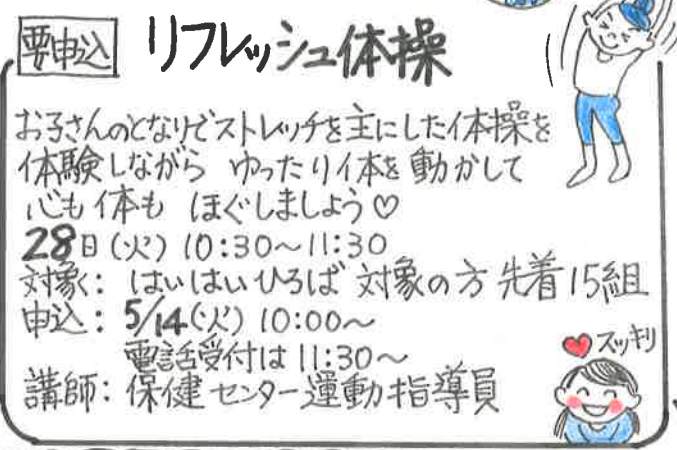 要申込 リフレッシュ体操
お子さんのとなりでストレッチを主にした体操を
体験しながら ゆったり体を動かして
心も体も ほぐしましょう♡
28日(火) 10:30~11:30
対象: はいはいひろば 対象の方 先着15組
申込: 5/14(火) 10:00~
電話受付は 11:30~
講師: 保健センター運動指導員
スッキリ